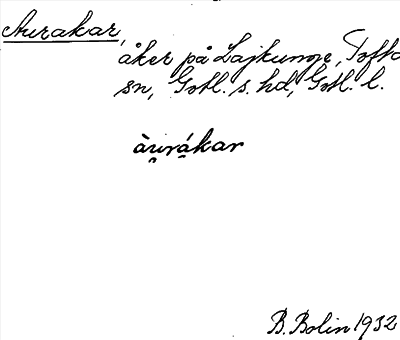 Aurakar,
åker på Lajkunge, Tofta
sn, Gotl. s. hd, Gotl. l.
àu̯rá̱kar
B. Bolin 1932